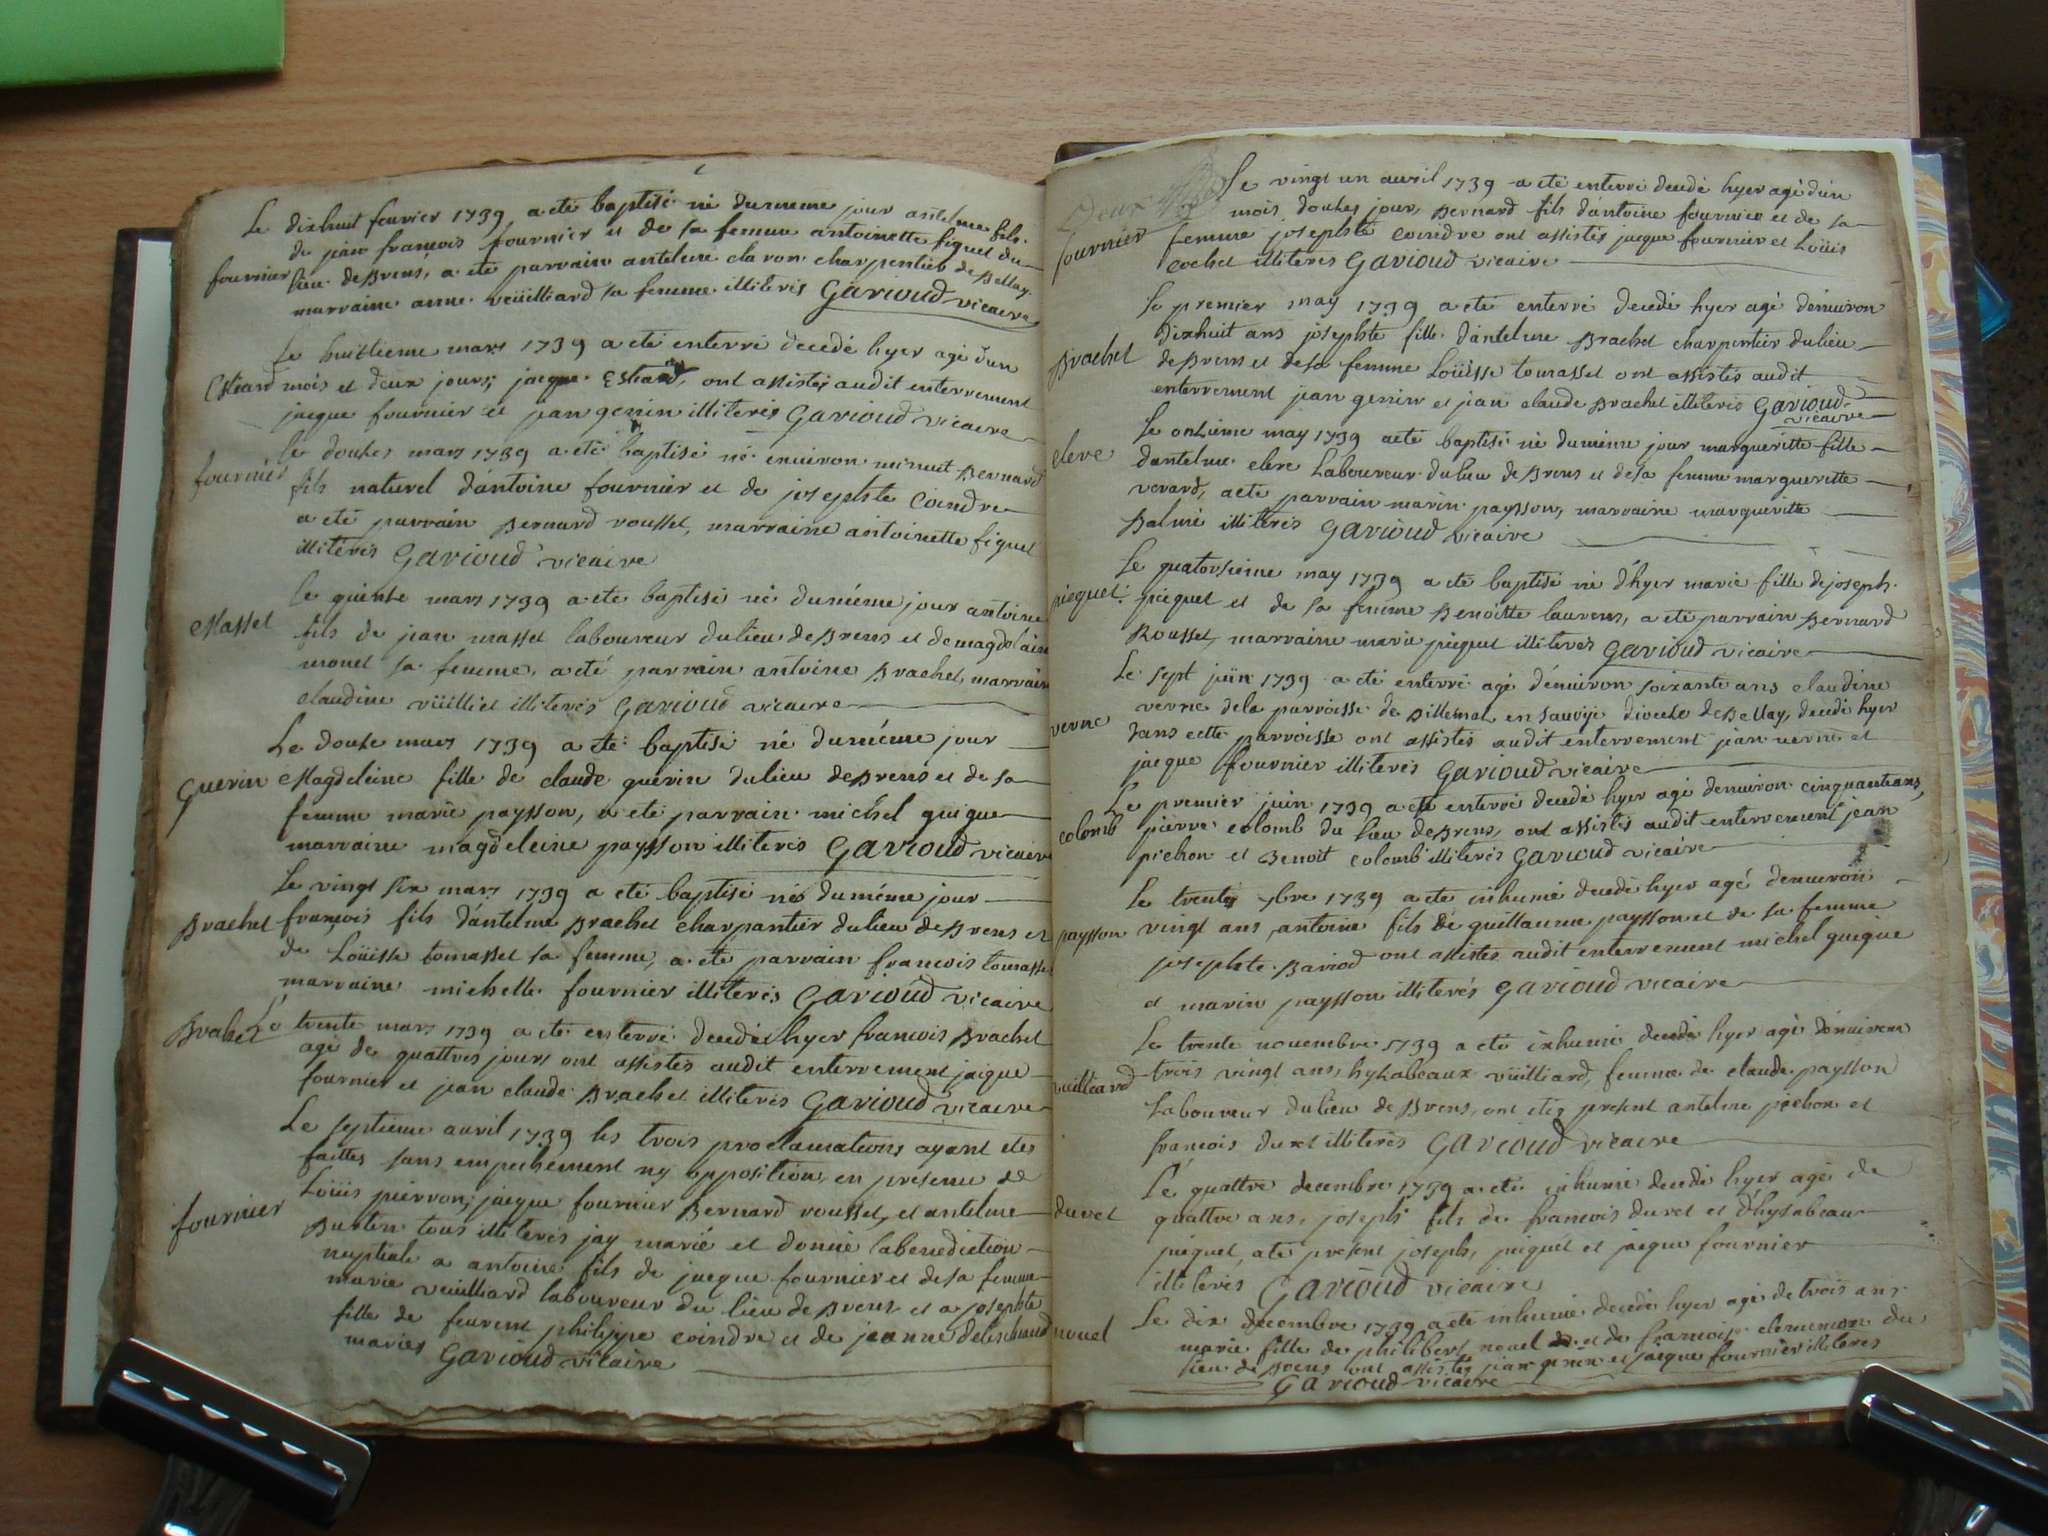 Le dixhuit feuvrier 1739 a eté baptisé né du meme jour antelme fils
de jean francois fournier et de sa femme antoinette figuet du
fournier lieu de Brens, a eté parrain antelme claron charpentier de Bellay
marraine anne veüilliard sa femme illiterés Garioud vicaire
Le huittieme mars 1739 a eté enterré decedé hyer agé d'un
Estiard mois et deux jours, jacque Estiard, ont assistés audit enterrement
jacque fournier et jean genin illiterés Garioud vicaire
Le douzes mars 1739 a eté baptisé né enuiron minuit Bernard
fournier fils naturel d'antoine fournier et de josephte Coindre
a eté parrain Bernard rousset, marraine antoinette figuet
illiterés Garioud vicaire
Le quinze mars 1739 a eté baptisé né du méme jour antoine
Masset fils de jean masset laboureur du lieu de Brens et de magdelaine
monet sa femme, a eté parrain antoine Brachet, marraine
claudine vüilliet illiterés Garioud vicaire
Le douze mars 1739 a eté baptisé né du méme jour
Guerin Magdeleine fille de claude guerin du lieu de Brens et de sa
femme marie paysson, a eté parrain michel guigue
marraine magdeleine paysson illiterés Garioud vicaire
Le vingt six mars 1739 a eté baptisé né du méme jour
Brachet francois fils d'antelme Brachet charpantier du lieu de Brens et
de Loüisse tomasset sa femme, a eté parrain francois tomasset
marraine michelle fournier illiterés Garioud vicaire
Brachet Le trente mars 1739 a eté enterré decedé hyer francois Brachet
agé de quattres jours ont assistés audit enterrement jacque
fournier et jean claude Brachet illiterés Garioud vicaire
Le septieme auril 1739 les trois proclamations ayant etés
faittes sans empechement ny opposition, en presence de
Loüis pierron, jacque fournier Bernard rousset, et antelme
fournier Burtin tous illiterés jay marié et donné la benediction
nuptiale a antoine fils de jacque fournier et de sa femme
marie veuilliard laboureur du lieu de Brens et a josephte
fille de feurent philippe coindre et de jeanne
mariés Garioud vicaire
Deux
Le vingt un auril 1739 a eté enterré decedé hyer agé d'un
mois douzes jour, Bernard fils d'antoine fournier et de sa
fournier femme josephte coindre ont assistés jacque fournier et Loüis
cochet illiterés Garioud vicaire
Le premier may 1739 a eté enterré decedé hyer agé d'enuiron
dixhuit ans josephte fille d'antelme Brachet charpentier du lieu
Brachet de Brens et de sa femme Loüisse tomasset ont assistés audit
enterrement jean genin et jean claude Brachet illiterés Garioud
vicaire
Le onzieme may 1739 a eté baptisé né du méme jour marguerite fille
eleve d'antelme eleve Laboureur du lieu de Brens et de sa femme marguerette
verard, a eté parrain marin paysson, marraine marguerite
Balmé illiterés Garioud vicaire
Le quatorsieme may 1739 a eté baptisé né d'hyer marie fille de joseph
picquet picquet et de sa femme Benoitte laurens, a eté parrain Bernard
Rousset, marraine marie picquet illiterés Garioud vicaire
Le sept jüin 1739 a eté enterré agé d'enuiron soixante ans claudine
verne verne de la parroisse de Billemat en sauoye diocese de Bellay, decedé hyer
dans cette parroisse ont assistés audit enterrement jean verne et
jacque fournier illiterés Garioud vicaire
Le premier juin 1739 a eté enterré decedé hyer agé denuiron cinquante ans,
colomb pierre colomb du lieu de Brens, ont assistés audit enterrement jean
pichon et Benoit colomb illiterés Garioud vicaire
Le trente 9bre 1739 a eté inhumé decedé hyer agé denuiron
paysson vingt ans, antoine fils de guillaume paysson et de sa femme
josephte Bariod ont assistés audit enterrement michel guigue
et marin paysson illiterés Garioud vicaire
Le trente nouembre 1739 a eté inhumé decedé hyer agé d'enuiron
vüilliard trois vingt ans, hyzabeaux vüilliard, femme de claude paysson
Laboureur du lieu de Brens, ont etés present antelme pichon et
francois duret illiterés Garioud vicaire
Le quattre decembre 1739 a eté inhumé decedé hyer agé de
duret quattre ans, joseph fils de francois duret et d'hysabeau
picquet, a té present joseph, picquet et jacque fournier
illiterés Garioud vicaire
Le dix decembre 1739 a eté inhumé decedé hyer agé de trois ans
nouel marie fille de philibert nouel et de francoise clemencon du
lieu de Brens ont assistés jean genin et jacque fournier illiteres
Garioud vicaire